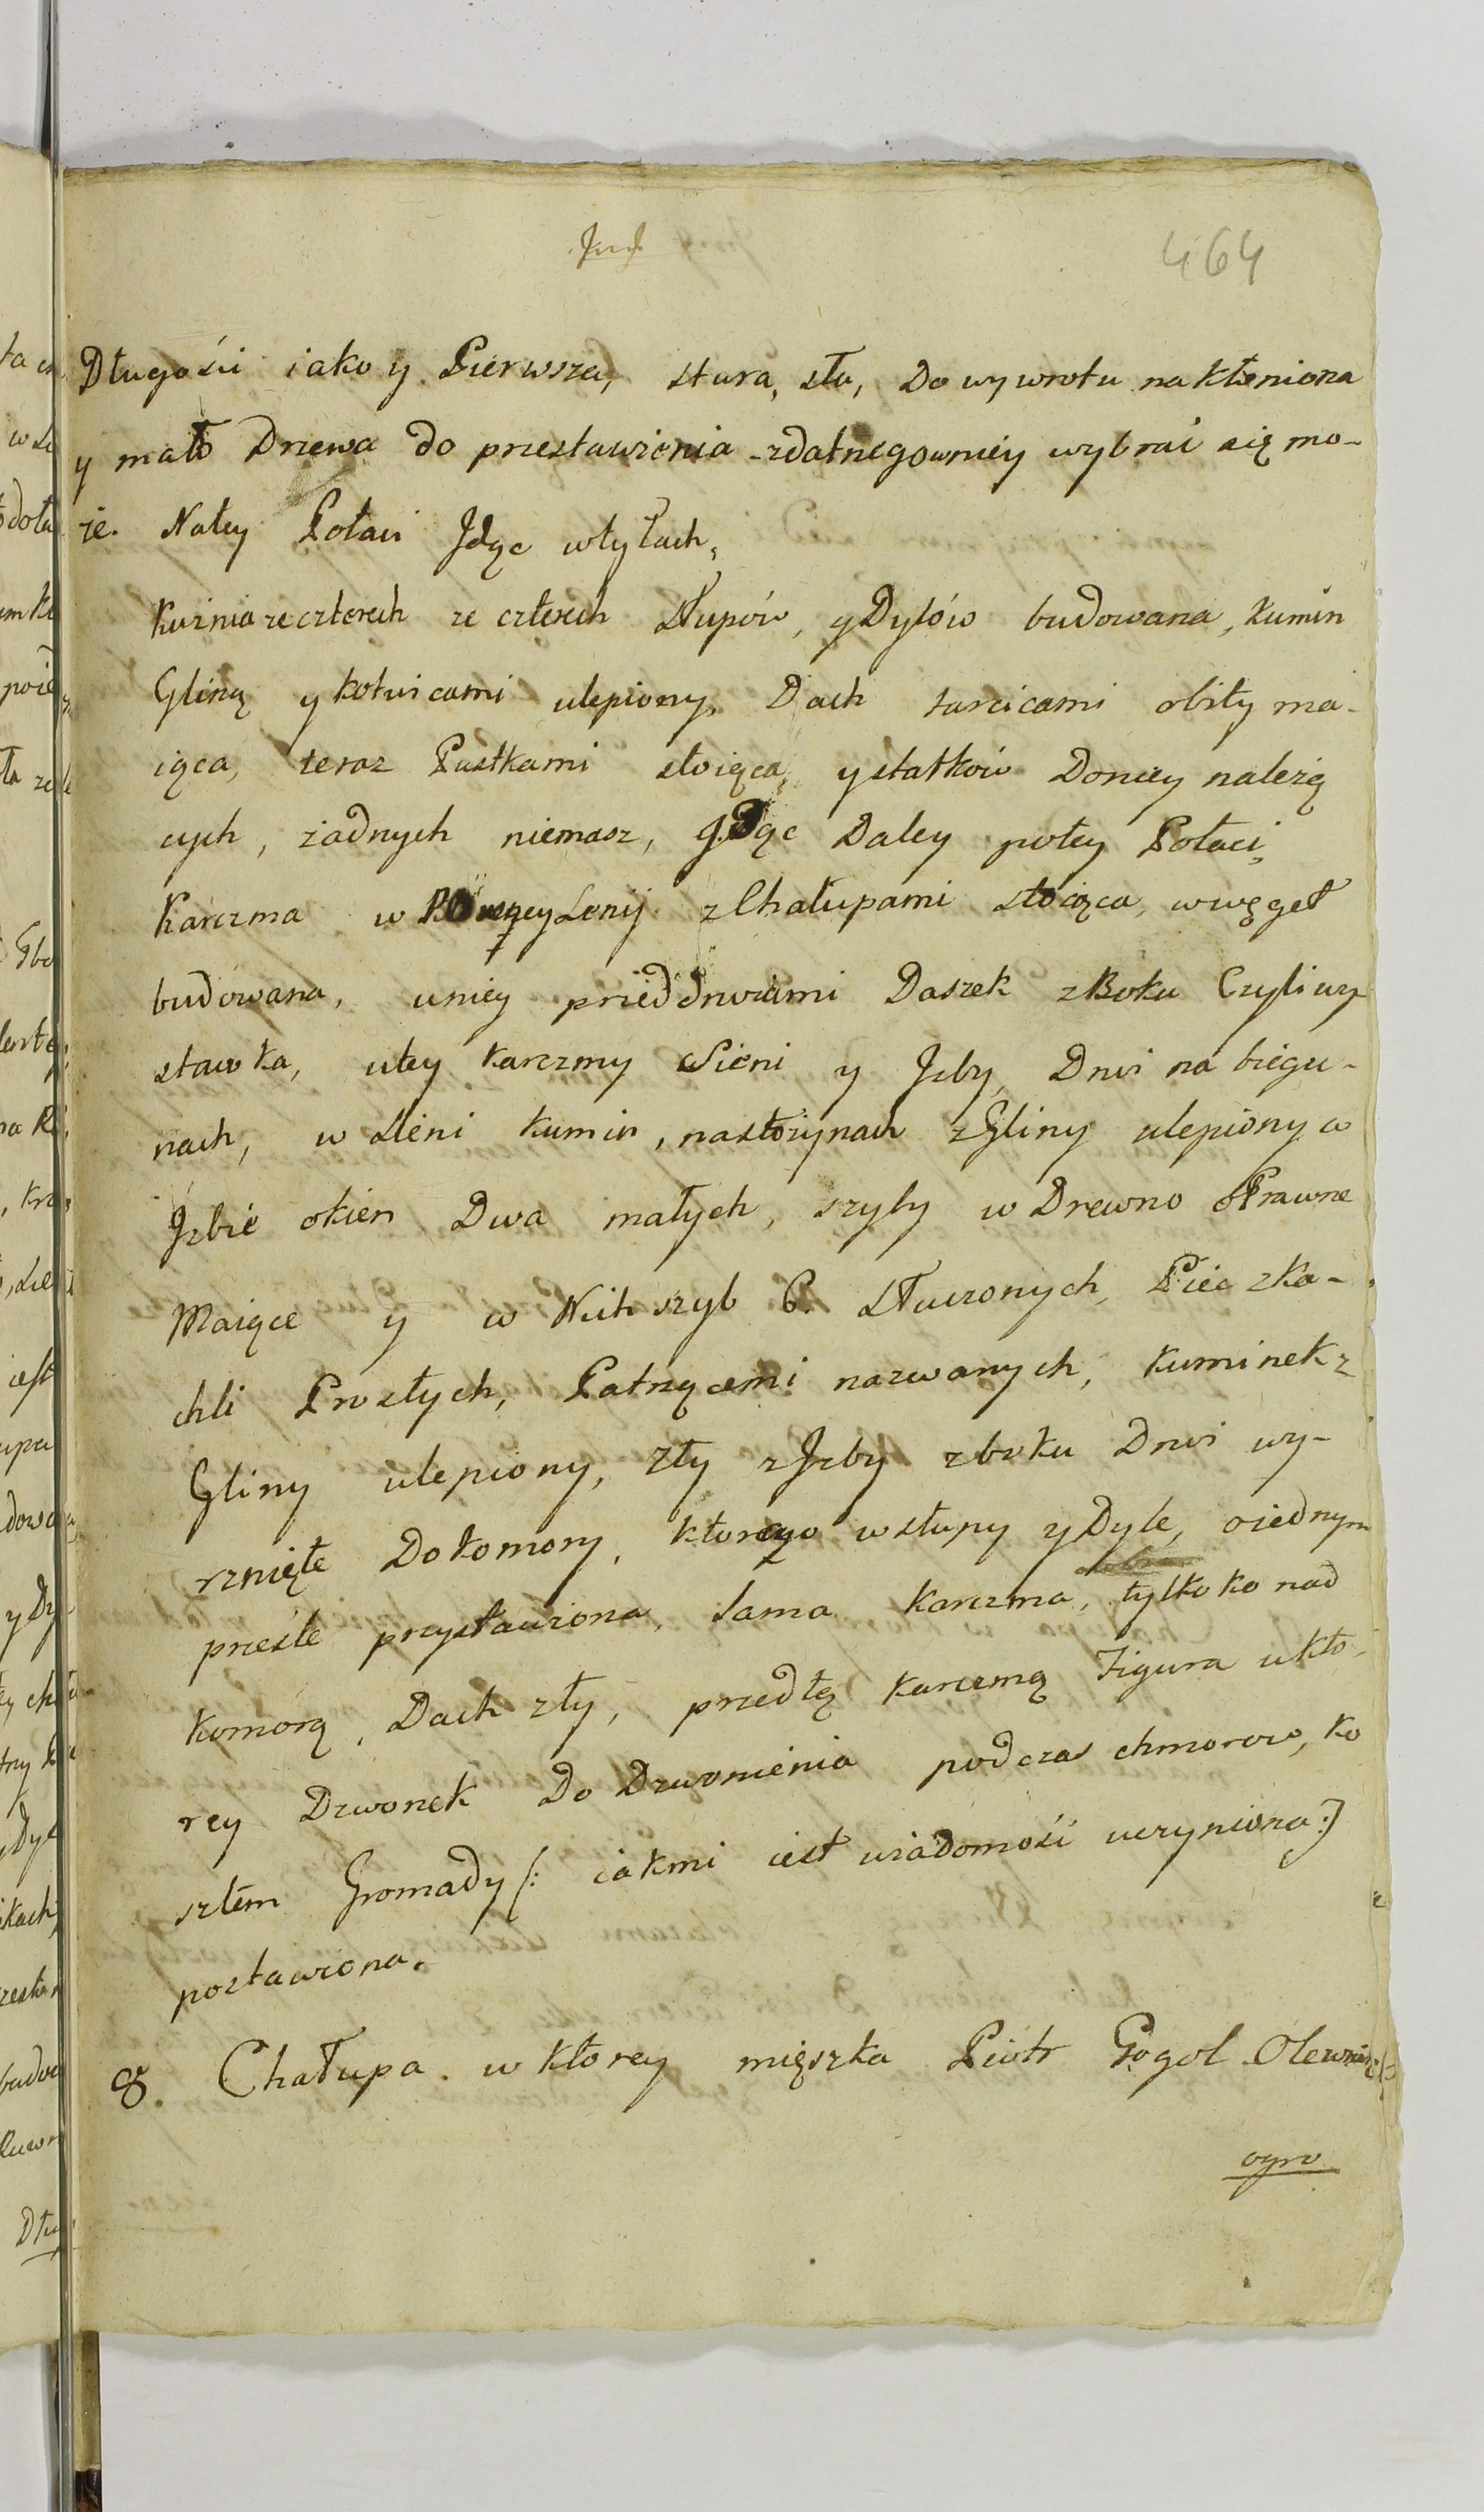 464
Długości iako y Pierwsza, stara, zła, Do wywrotu nakłoniona
y mało Drzewa do przestawienia zdatnego wniey wybrać się mo-
że. Natey Połaci Jdąc wtyłach,
Kuźnia ze czterech ze czterech Słupów, y Dylów budowana, kumin
Gliną y kołwicami ulepiony, Dach tarcicami obity ma-
iąca, teraz Pustkami stoiąca, y statków Doniey należą
cych, żadnych niemasz, Jdąc Daley potey Połaci,
Karczma w Lenij z Chałupami stoiąca, wwęgeł
budowana, uniey przed drzwiami Daszek z Boku Czyli wy
stawka, utey karczmy Sieni y Jzby, Drwi na biegu-
nach, w Sieni kumin, nastożynach z Gliny ulepiony w
Jzbie okien Dwa małych, szyby w Drewno oPrawne
Maiące y w Nich szyb 6. Stłuczonych, Piec zka-
chli Prostych, Patrzącemi nazwanych, kuminek z
Gliny ulepiony, zły z Jzby zboku Drwi wy-
rznięte Dokomory, która w słupy y Dyle, oiednym
prześle przystawiona, Sama Karczma, tylko ko nad
komorą, Dach zły, przedtą karczmą Figura ukto-
rey Dzwonek Do Dzwonienia podczas chmurow, ko
sztem Gromady /: iakmi iest wiadomość uczyniona :/
postawiona.
8. Chałupa w ktorey mięszka Piotr Gogol
ogro